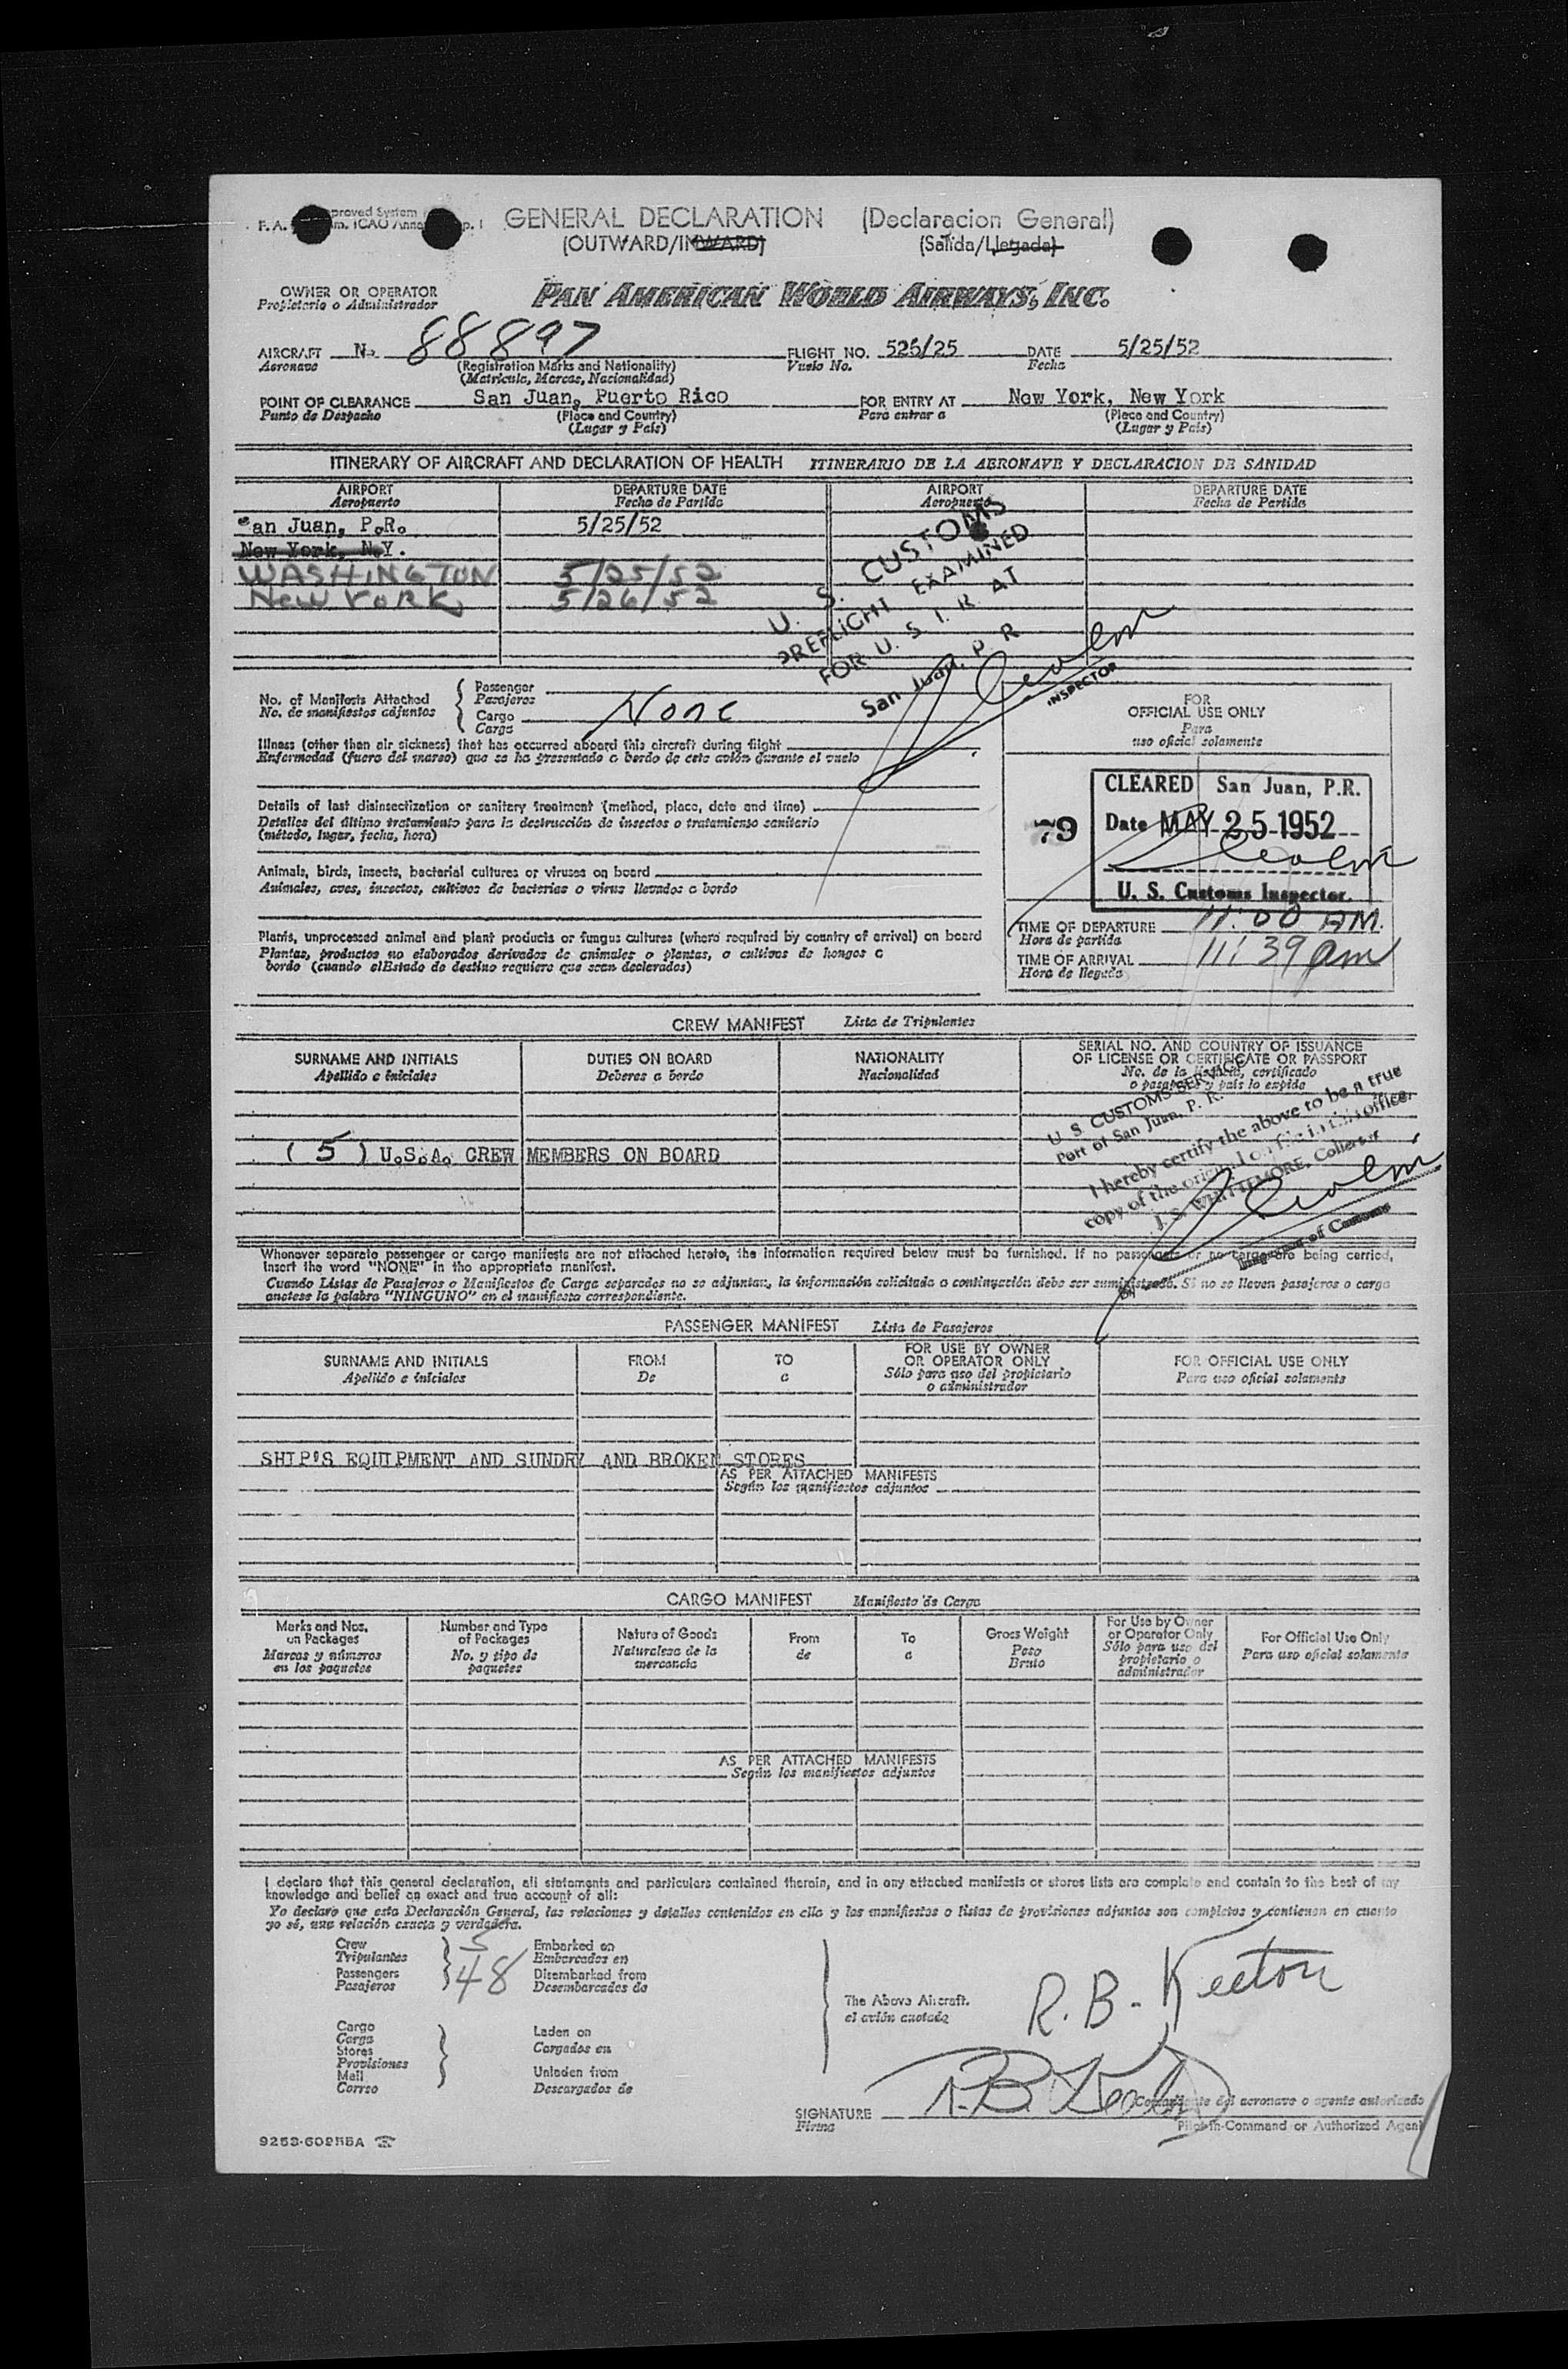 F. A.
proved System
m. ICAO Anne p. I
GENERAL DECLARATION (Declaracion General)
(OUTWARD/INWARD) (Salida/Llegada)
OWNER OR OPERATOR
Propietario o Administrador
PAN AMERICAN WORLD AIRWAYS, INC.
AIRCRAFT N- 88897 FLIGHT NO. 526/25 DATE 5/25/52
Aeronave (Registration Marks and Nationality) Vuelo No. Fecha
(Matricula, Marcas, Nacionalidad)
POINT OF CLEARANCE San Juan, Puerto Rico FOR ENTRY AT New York, New York
Punto de Despacho (Place and Country) Para entrar a (Place and Country)
(Lugar y País) (Lugar y País)
ITINERARY OF AIRCRAFT AND DECLARATION OF HEALTH ITINERARIO DE LA AERONAVE Y DECLARACION DE SANIDAD
AIRPORT DEPARTURE DATE AIRPORT DEPARTURE DATE
Aeropuerto Fecha de Partida Aeropuerto Fecha de Partida
San Juan, P.R. 5/25/52
New York, N.Y.
WASHINGTON 5/25/52
New York 5/26/52
U. S. CUSTOMS
PREFLIGHT EXAMINED
FOR U. S. I. R. AT
San Juan, P. R.
INSPECTOR
No. of Manifests Attached
No. de manifiestos adjuntos
Passenger
Pasajeros
Cargo None
Carga
Illness (other than air sickness) that has occurred aboard this aircraft during flight
Enfermedad (fuera del mareo) que se ha presentado a bordo de este avión durante el vuelo
Details of last disinsectization or sanitary treatment (method, place, date and time)
Detalles del último tratamiento para la destrucción de insectos o tratamiento sanitario
(método, lugar, fecha, hora)
Animals, birds, insects, bacterial cultures or viruses on board
Animales, aves, insectos, cultivos de bacterias o virus llevados a bordo
Plants, unprocessed animal and plant products or fungus cultures (where required by country of arrival) on board
Plantas, productos no elaborados derivados de animales o plantas, o cultivos de hongos a
bordo (cuando elEstado de destino requiere que sean declarados)
FOR
OFFICIAL USE ONLY
Para
uso oficial solamente
CLEARED San Juan, P.R.
79 Date MAY 25 1952
U. S. Customs Inspector.
TIME OF DEPARTURE 11:00 AM.
Hora de partida
TIME OF ARRIVAL 11:39 am
Hora de llegada
CREW MANIFEST Lista de Tripulantes
SURNAME AND INITIALS DUTIES ON BOARD NATIONALITY SERIAL NO. AND COUNTRY OF ISSUANCE
OF LICENSE OR CERTIFICATE OR PASSPORT
Apellido e iniciales Deberes a bordo Nacionalidad No. de la licencia, certificado
o pasaporte y país lo expide
(5) U.S.A. CREW MEMBERS ON BOARD
U. S. CUSTOMS SERVICE
Port of San Juan, P. R.
I hereby certify the above to be a true
copy of the original on file in this office.
J. S. WHITTEMORE, Collector
By
of Customs
Whenever separate passenger or cargo manifests are not attached hereto, the information required below must be furnished. If no passengers or no cargo are being carried,
insert the word "NONE" in the appropriate manifest.
Cuando Listas de Pasajeros o Manifiestos de Carga separados no se adjuntan, la información solicitada a continuación debe ser suministrada. Si no se llevan pasajeros o carga
anotese la palabra "NINGUNO" en el manifiesto correspondiente.
PASSENGER MANIFEST Lista de Pasajeros
SURNAME AND INITIALS FROM TO FOR USE BY OWNER
OR OPERATOR ONLY FOR OFFICIAL USE ONLY
Apellido e iniciales De a Sólo para uso del propietario
o administrador Para uso oficial solamente
SHIP'S EQUIPMENT AND SUNDRY AND BROKEN STORES
AS PER ATTACHED MANIFESTS
Según los manifiestos adjuntos
CARGO MANIFEST Manifiesto de Carga
Marks and Nos.
on Packages
Marcas y números
en los paquetes
Number and Type
of Packages
No. y tipo de
paquetes
Nature of Goods
Naturaleza de la
mercancía
From
de
To
a
Gross Weight
Peso
Bruto
For Use by Owner
or Operator Only
Sólo para uso del
propietario o
administrador
For Official Use Only
Para uso oficial solamente
AS PER ATTACHED MANIFESTS
Según los manifiestos adjuntos
I declare that this general declaration, all statements and particulars contained therein, and in any attached manifests or stores lists are complete and contain to the best of my
knowledge and belief an exact and true account of all:
Yo declaro que esta Declaración General, las relaciones y detalles contenidos en ella y los manifiestos o listas de provisiones adjuntos son completos y contienen en cuanto
yo sé, una relación exacta y verdadera.
Crew 5 Embarked on
Tripulantes Embarcados en
Passengers 48 Disembarked from
Pasajeros Desembarcados de
Cargo
Carga
Stores
Provisiones
Mail
Correo
Laden on
Cargados en
Unladen from
Descargados de
The Above Aircraft.
el avión anotado
R. B. Keeton
SIGNATURE R.B. Keeton
Firma
Comandante del aeronave o agente autorizado
Pilot-in-Command or Authorized Agent
9253-60255A